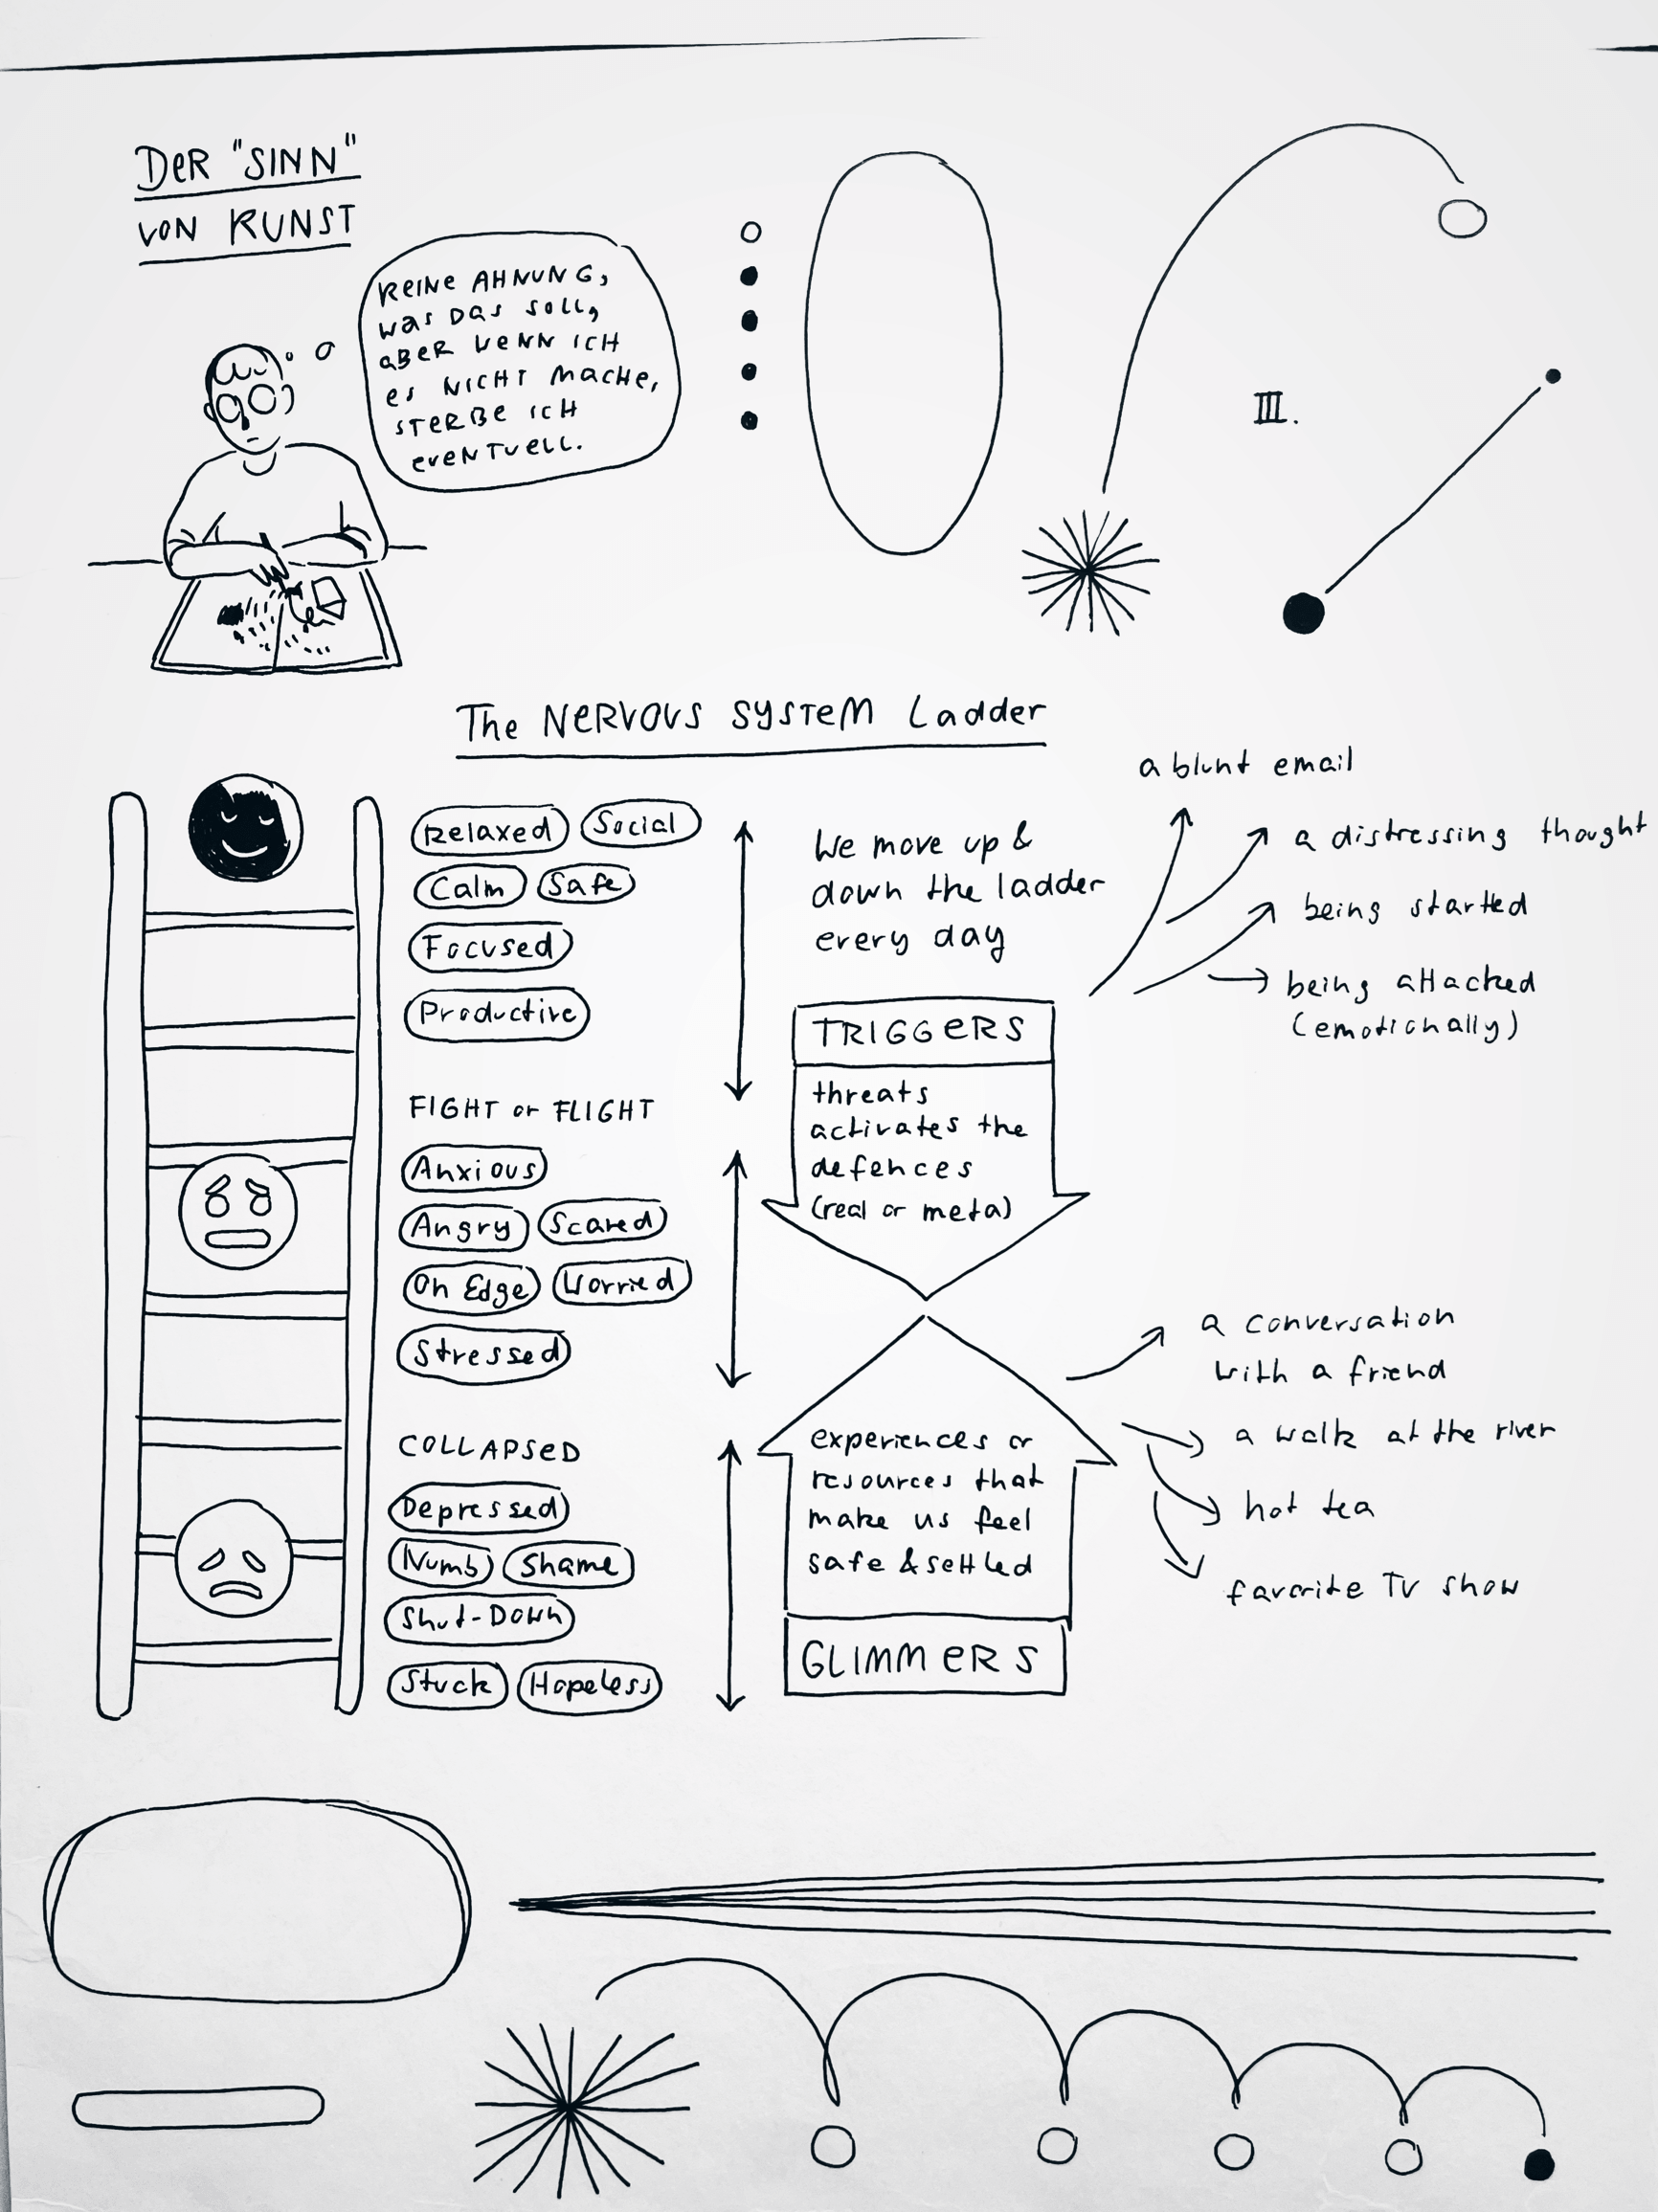 DER "SINN"
VON KUNST
KEINE AHNUNG,
WAS DAS SOLL,
ABER WENN ICH
ES NICHT MACHE,
STERBE ICH
EVENTUELL.
III.
The NERVOUS SYSTEM Ladder
Relaxed Social
Calm Safe
Focused
Productive
FIGHT or FLIGHT
Anxious
Angry Scared
On Edge Worried
Stressed
COLLAPSED
Depressed
Numb Shame
Shut-Down
Stuck Hopeless
We move up &
down the ladder
every day
TRIGGERS
threats
activates the
defences
(real or meta)
a blunt email
a distressing thought
being started
being attacked
(emotionally)
experiences or
resources that
make us feel
safe & settled
GLIMMERS
a conversation
with a friend
a walk at the river
hot tea
favorite TV show